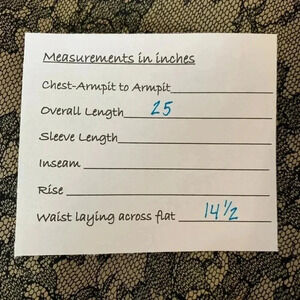 Measurements in inches
Chest-Armpit to Armpit
Overall Length 25
Sleeve Length
Inseam
Rise
Waist laying across flat 14 1/2